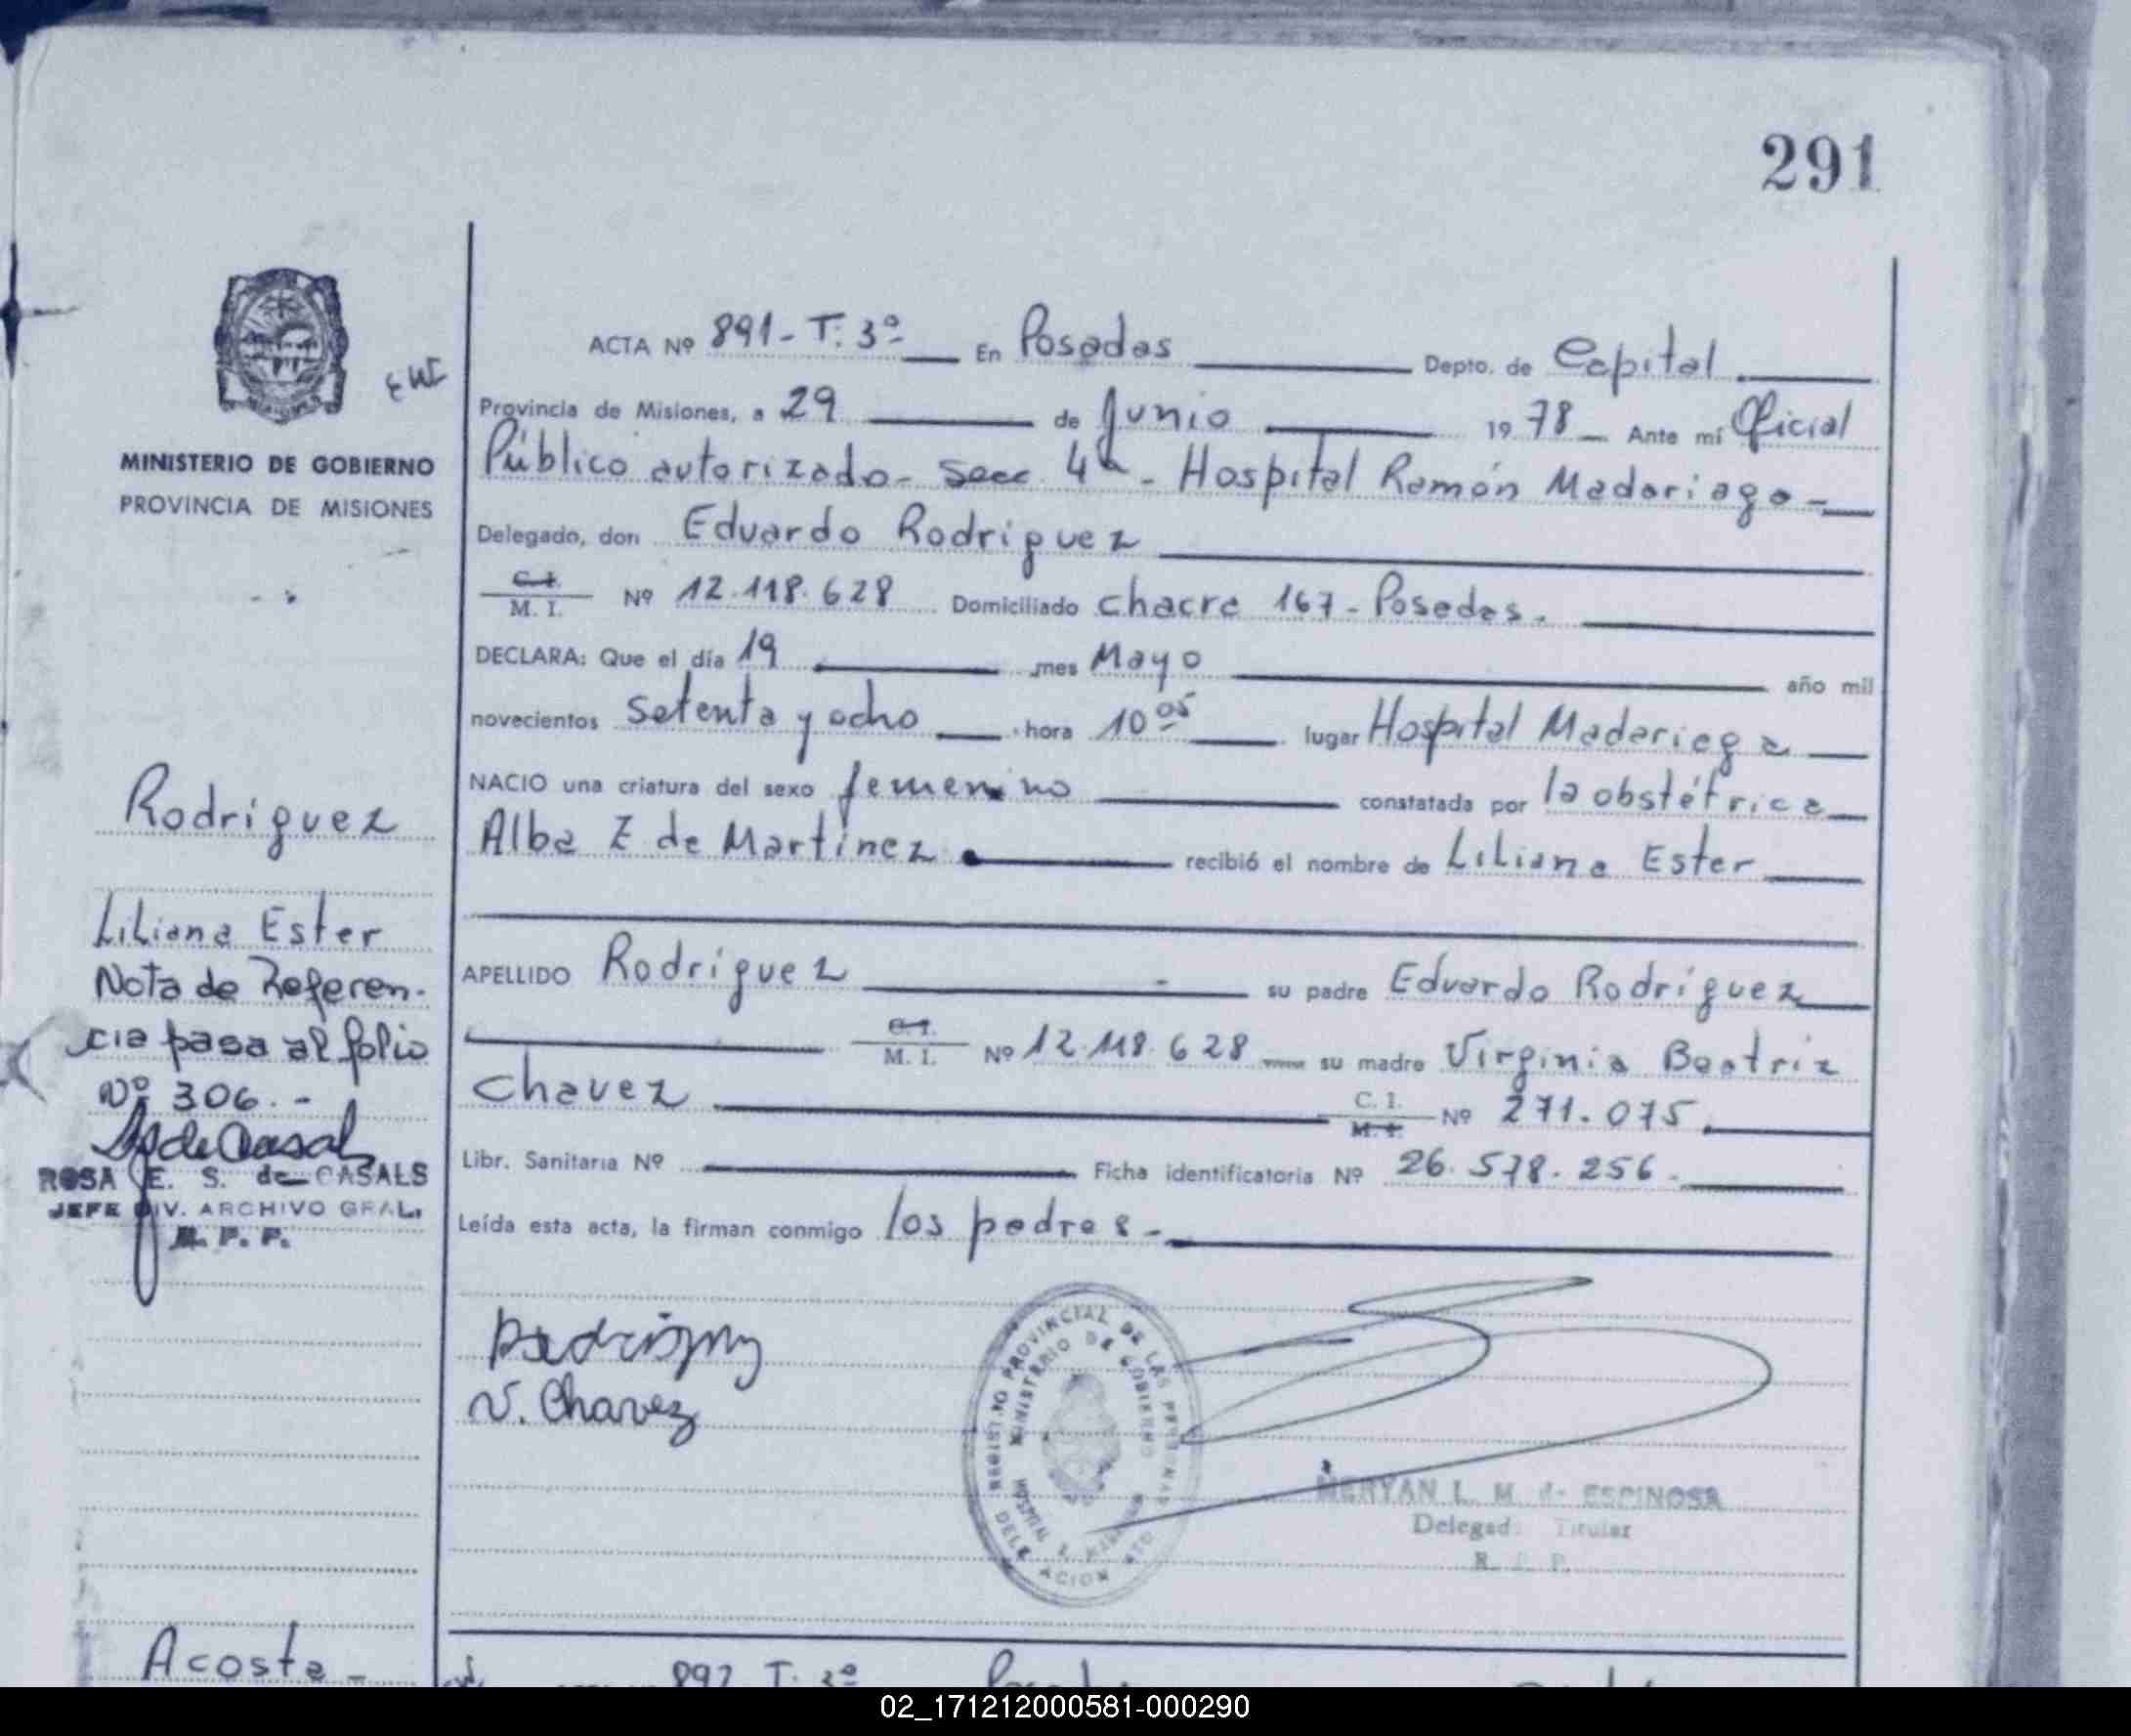 291
MINISTERIO DE GOBIERNO
PROVINCIA DE MISIONES
ACTA Nº 891-T. 3º- En Posadas Depto. de Capital
Provincia de Misiones, a 29 de Junio 1978 Ante mí Oficial
Público autorizado- Secc. 4ª - Hospital Ramón Madariaga-
Delegado, don Eduardo Rodriguez
C. I. M. I. Nº 12.118.628 Domiciliado Chacra 167-Posadas.
DECLARA: Que el día 19 mes Mayo año mil
novecientos setenta y ocho hora 10 05 lugar Hospital Madariaga
NACIO una criatura del sexo femenino constatada por la obstétrica
Alba Z de Martínez recibió el nombre de Liliana Ester
APELLIDO Rodríguez su padre Eduardo Rodríguez
C. I. M. I. Nº 12.118.628 su madre Virginia Beatriz
Chavez C. I. M. I. Nº 271.075
Libr. Sanitaria Nº Ficha identificatoria Nº 26.578.256.
Leída esta acta, la firman conmigo los padres-
Rodríguez
Liliana Ester
Nota de Referen-
cia pasa al folio
Nº 306.-
ROSA E. S. de CASALS
JEFE DIV. ARCHIVO GRAL.
R. P. P.
V. Chavez
REGISTRO PROVINCIAL DE LAS PERSONAS
MINISTERIO DE GOBIERNO
DELEGACION
MERYAN L. M. de ESPINOSA
Delegad Titular
R. P. P.
Acosta-
892 T. 3º Posadas
02_171212000581-000290